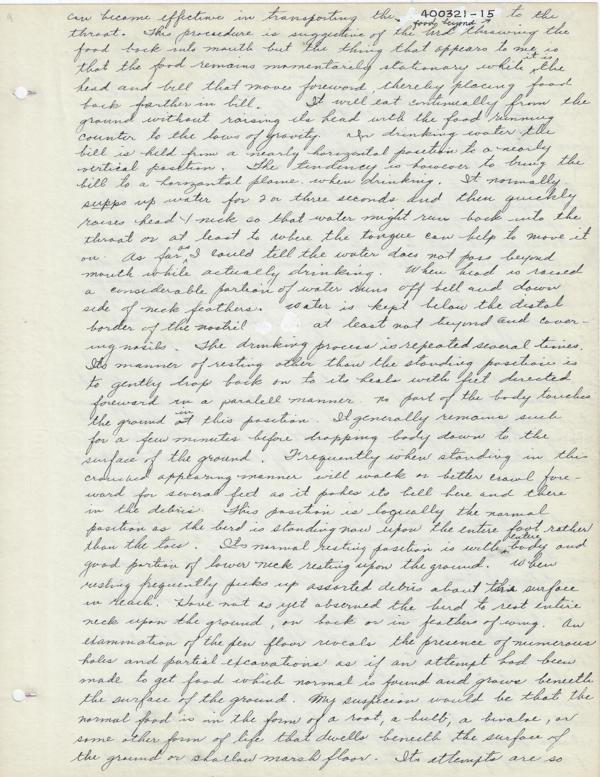 can become effective in transporting the food beyond 400321-15 to the
throat. This procedure is suggestive of the bird throwing the
food back into mouth but the thing that appears to me is
that the food remains momentarily stationary while it is the
head and bill that moves foreword, thereby placing food
back farther in bill. It will eat continually from the
ground without raising its head with the food running
counter to the laws of gravity. In drinking water the
bill is held from a nearly horizontal position to a nearly
vertical position. The tendency is however to bring the
bill to a horizontal plane when drinking. It normally
supps up water for 2 or three seconds and then quickly
raises head & neck so that water might run back into the
throat or at least to where the tongue can help to move it
on. As far as I could tell the water does not pass beyond
mouth while actually drinking. When head is raised
a considerable portion of water runs off bill and down
side of neck feathers. Water is kept below the distal
border of the nostril at least not beyond and cover-
ing nosils. The drinking process is repeated several times.
Its manner of resting other than the standing position is
to gently drop back on to its heals with feet directed
foreword in a paralell manner. no part of the body touches
the ground in this position. It generally remains such
for a few minutes before dropping body down to the
surface of the ground. Frequently when standing in this
crouched appearing manner will walk or better crawl fore-
ward for several feet as it pokes its bill here and there
in the debris. This position is logically the normal
position as the bird is standing now upon the entire foot rather
than the toes. Its normal resting position is with entire body and
good portion of lower neck resting upon the ground. When
resting frequently picks up assorted debris about the surface
in reach. Have not as yet observed the bird to rest entire
neck upon the ground, on back or in feathers of wing. An
examination of the pen floor reveals the presence of numerous
holes and partial excavations as if an attempt had been
made to get food which normal is found and grows beneath
the surface of the ground. My suspecion would be that the
normal food is in the form of a root, a bulb, a bivalve, or
some other form of life that dwells beneath the surface of
the ground or shallow marsh floor. Its attempts are so